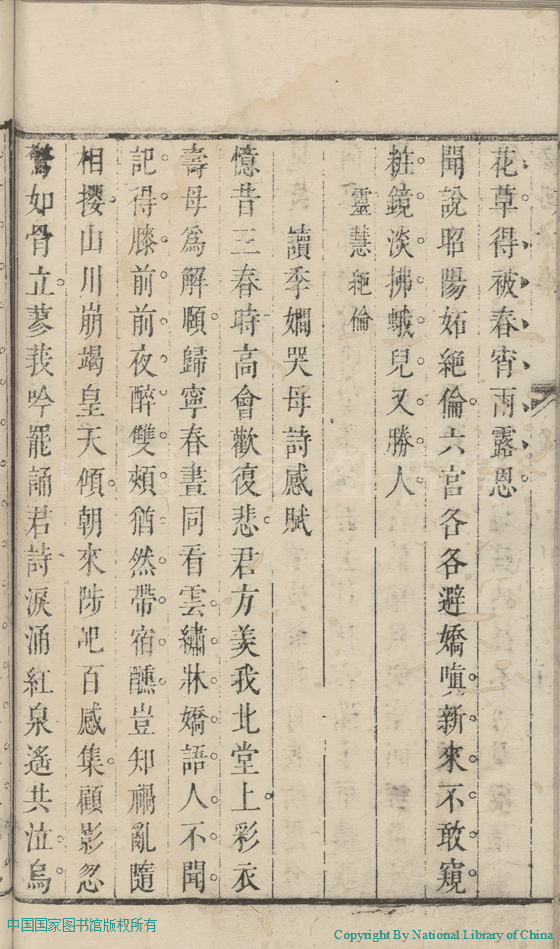 花草得被春宵雨露恩
聞說昭陽妬絕倫六宮各各避嬌嗔新來不敢窺
粧鏡淡拂蛾兒又勝人
靈慧絕倫
讀季嫻哭母詩感賦
憶昔三春時高會歡復悲君方羨我北堂上彩衣
壽母為解願歸寧春晝同看雲繡牀嬌語人不聞
記得膝前前夜醉雙頰猶然帶宿醺豈知禍亂隨
相攖山川崩竭皇天傾朝來陟屺百感集顧影忽
驚如骨立蓼莪吟罷誦君詩淚涌紅泉遙共泣烏
中国国家图书馆版权所有
Copyright By National Library of China